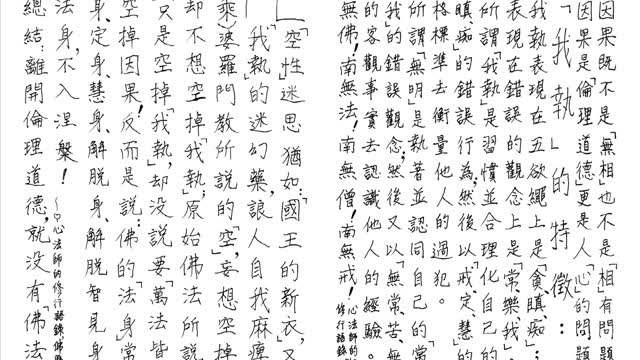 因果既不是「無相」也不是「相有問題
因果是「倫理道德」更是人「心的問題
「我執」的特徵：
我執表現在五欲繩上是「貪瞋痴」：
表現在錯誤的觀念上是「常、樂、我
所謂「我執」是習慣並合理化自己的「
瞋、痴的錯誤行為，然後以「戒、定、慧」的
格標準去衡量他人的過犯。
所謂「無明」是執著並認同自己的「常
我」的錯誤觀念，然後又以「無常、苦、無
的客觀事實去認識他人的經驗。
南無佛！南無法！南無僧！南無戒！
心法師的修行語錄
「空性」迷思猶如：「國王的新衣」，又
「我執」的迷幻藥，浪人自我麻痺
乘、婆羅門教所說的「空」，妄想空掉
却不想空掉「我執」；原始佛法所說
只是空掉「我執」，却没說要「萬法皆
空掉因果！反而是說：「佛的法身常
身、定身、慧身、解脫身、解脫智見身
法身，不入涅槃！
心法師的修行語錄佛
總結：離開倫理道德，就没有「佛法